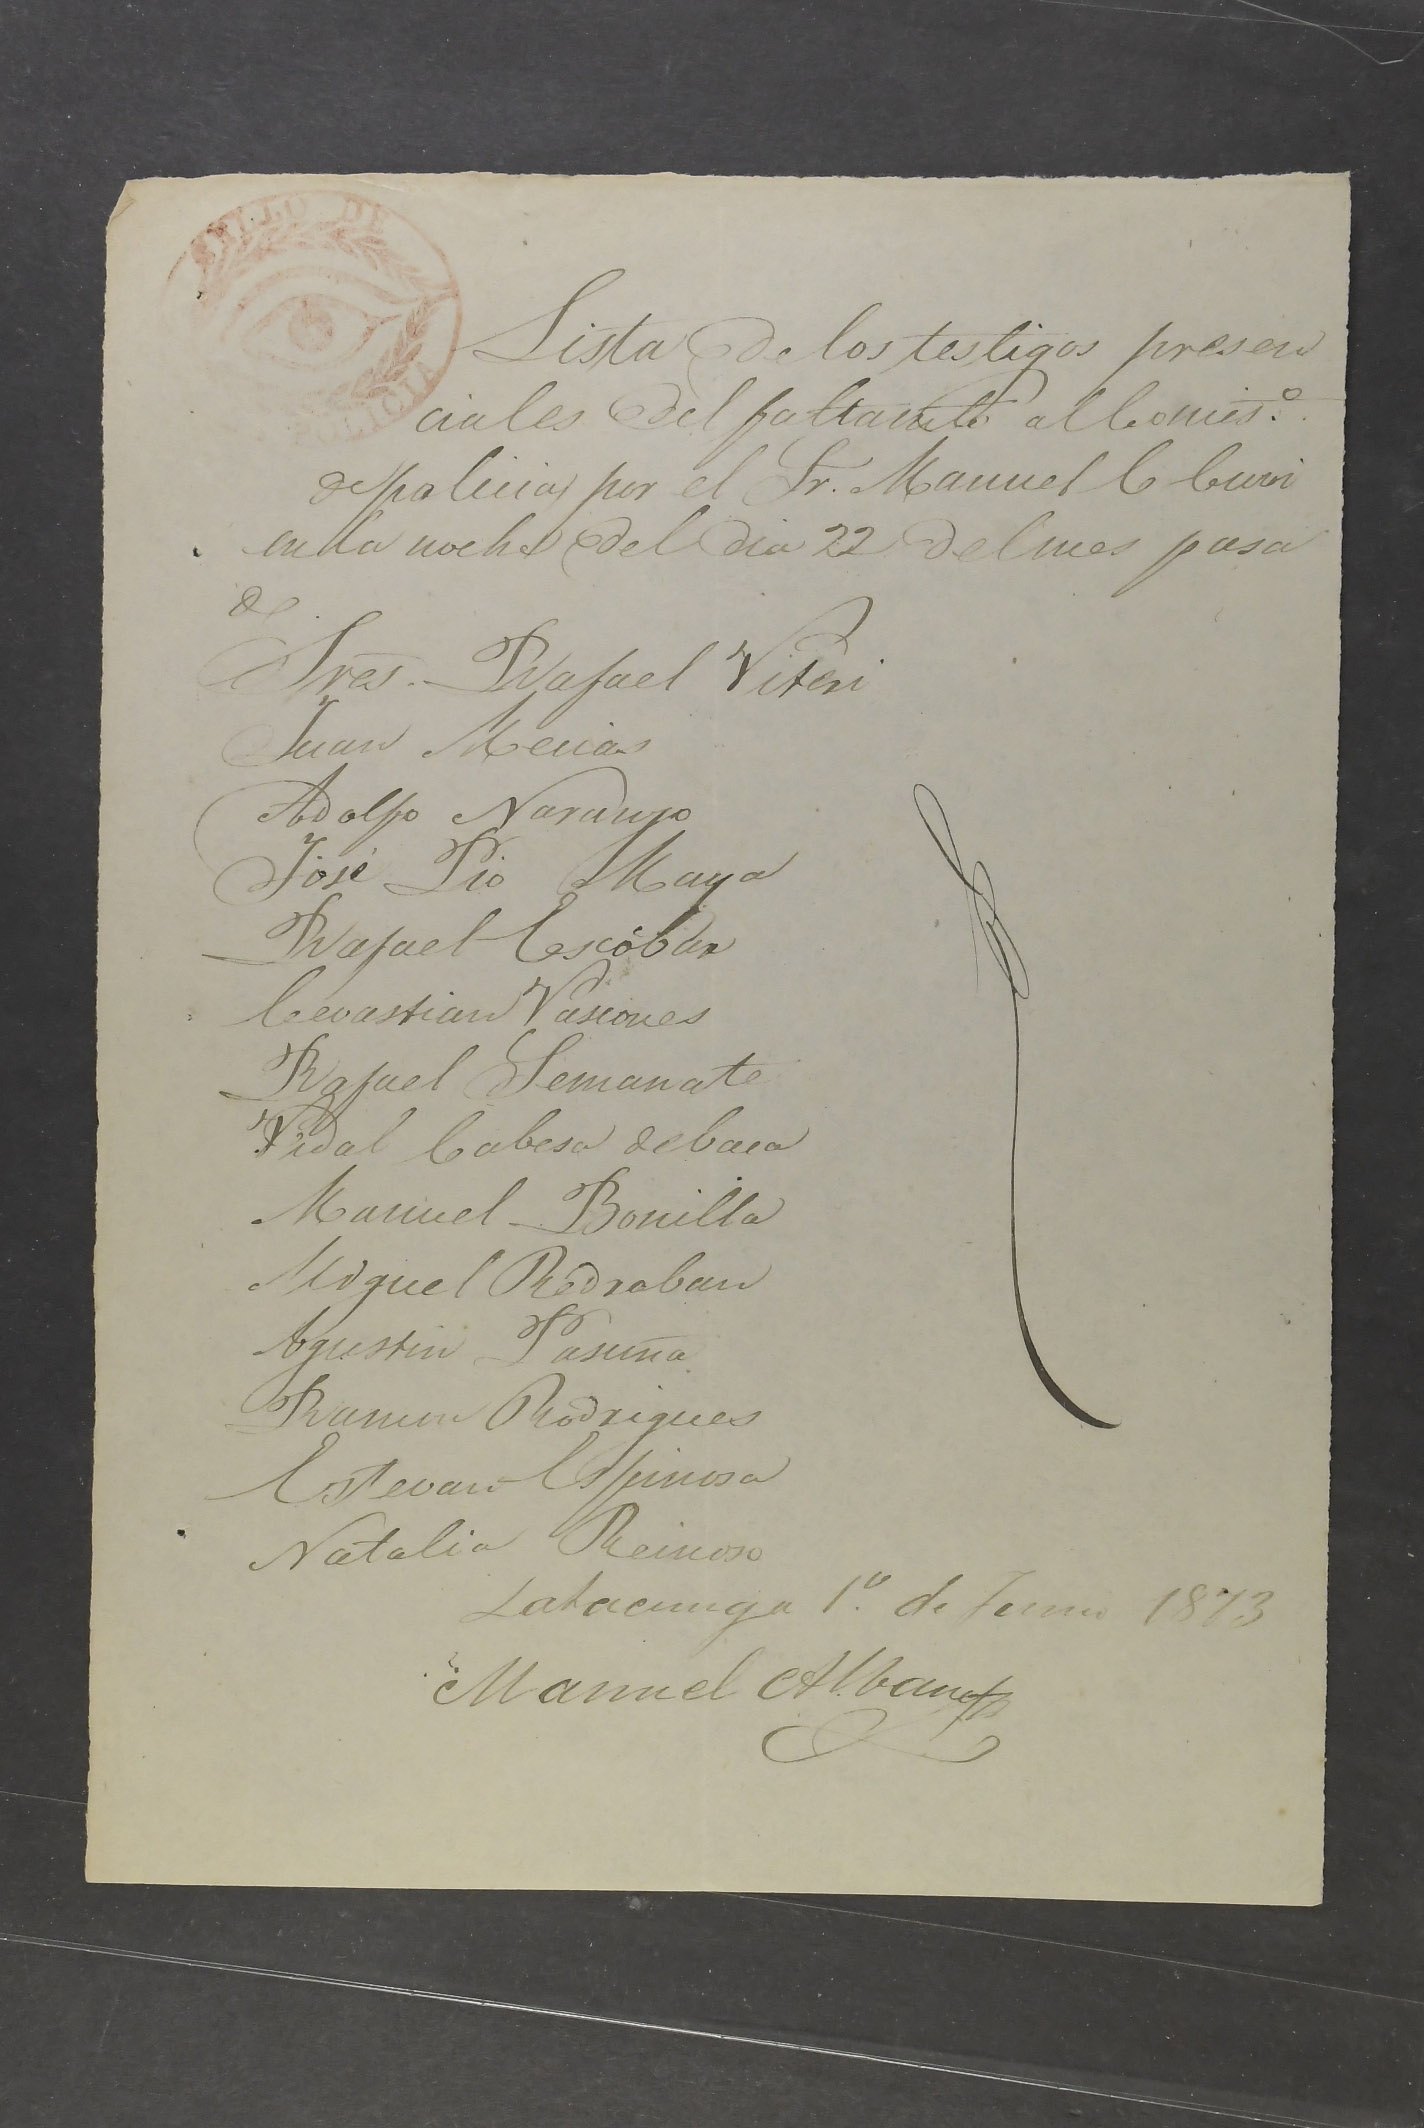 SELLO DE
POLICIA
Lista de los testigos presen
ciales del faltamto al Comis.o
de policia por el Sr. Manuel C
en la noche del dia 22 del mes pasa
do
Sres. Rafael Viteri
Juan Mecias
Adolfo Naranjo
José Pio Maya
Rafael Escobar
Cevastian Vascones
Rafael Semanate
Vidal Cabesa debaca
Manuel Bonilla
Miguel Redroban
Agustin Pasuña
Ramon Rodrigues
Estevan Espinosa
Natalia Reinoso
Latacunga 1.o de Junio 1873
Manuel Alban